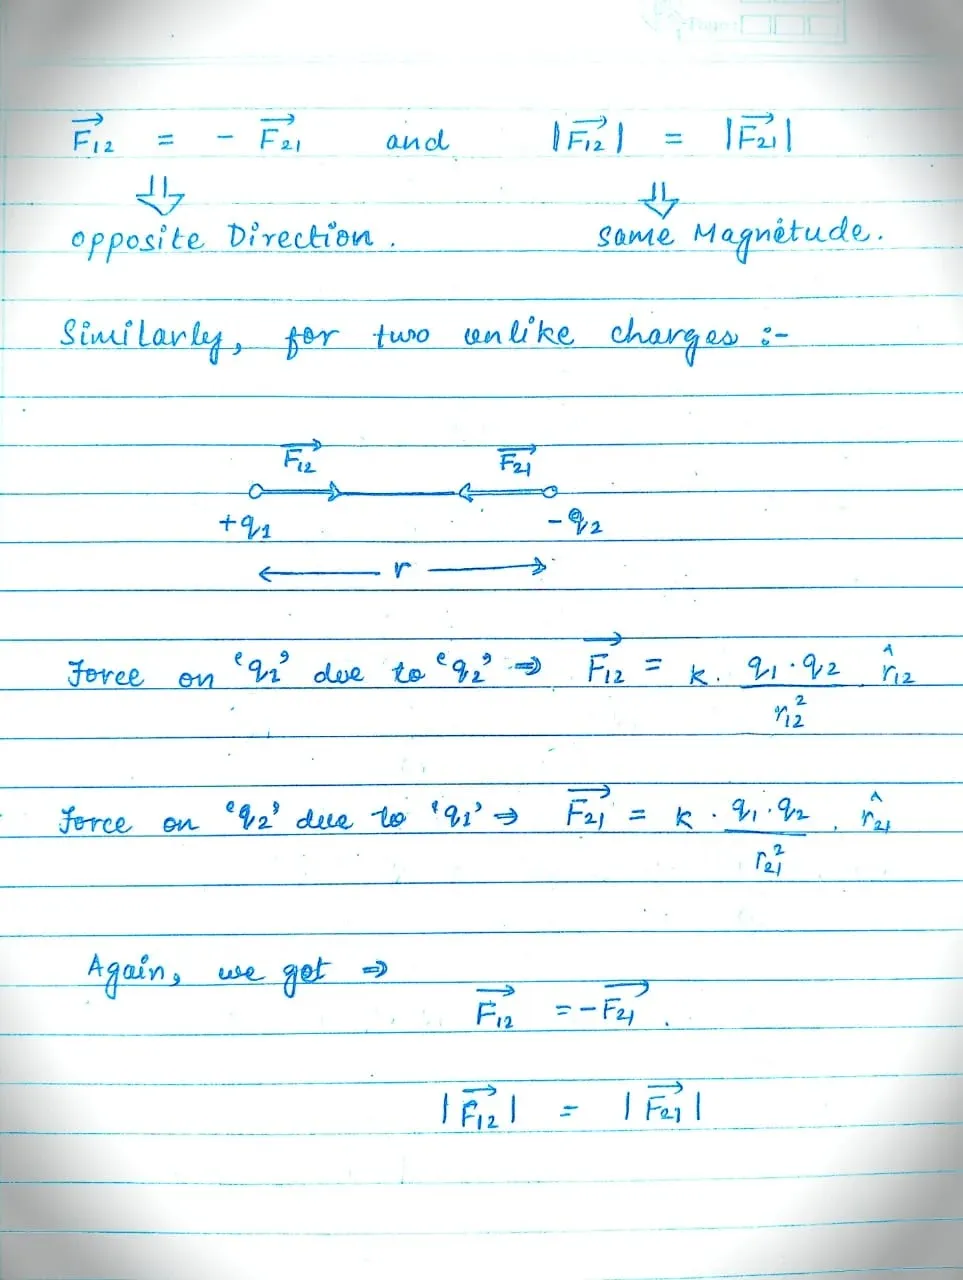 F₁₂ = - F₂₁ and |F₁₂| = |F₂₁|
⇓ ⇓
opposite Direction. same Magnitude.
Similarly, for two unlike charges :-
F₁₂ F₂₁
+q₁ -q₂
← r →
Force on 'q₁' due to 'q₂' ⇒ F₁₂ = k. q₁·q₂ / r₁₂² r̂₁₂
Force on 'q₂' due to 'q₁' ⇒ F₂₁ = k · q₁·q₂ / r₂₁² . r̂₂₁
Again, we got ⇒
F₁₂ = -F₂₁.
|F₁₂| = |F₂₁|